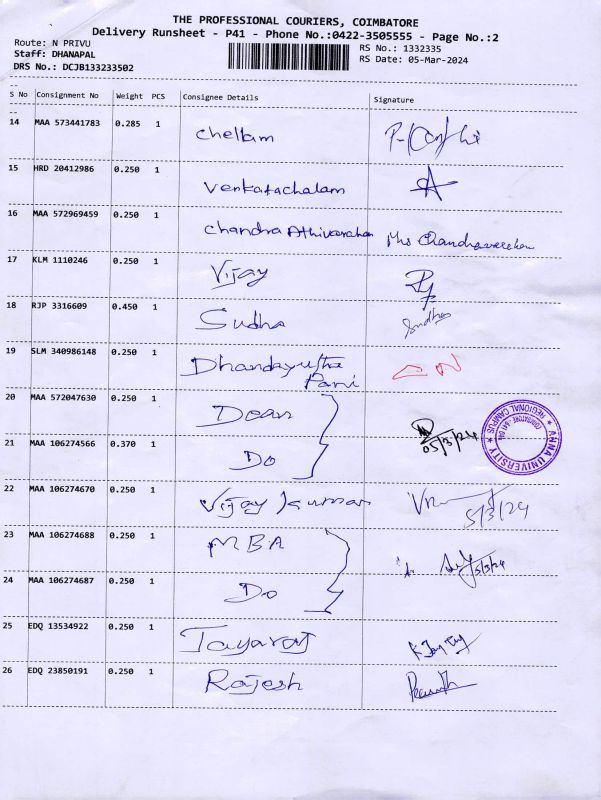 THE PROFESSIONAL COURIERS, COIMBATORE
Delivery Runsheet - P41 - Phone No.:0422-3505555 - Page No.:2
Route: N PRIVU
RS No.: 1332335
Staff: DHANAPAL
RS Date: 05-Mar-2024
DRS No.: DCJB133233502
S No Consignment No Weight PCS Consignee Details Signature
14 MAA 573441783 0.285 1 Chellam
15 HRD 20412986 0.250 1 Venkatachalam
16 MAA 572969459 0.250 1 Chandra Athivarahan
17 KLM 1110246 0.250 1 Vijay
18 RJP 3316609 0.450 1 Sudha Sudha
19 SLM 340986148 0.250 1 Dhandayutha
Pani
20 MAA 572047630 0.250 1 Dean
05/3/24
21 MAA 106274566 0.370 1 Do
ANNA UNIVERSITY
REGIONAL CAMPUS
22 MAA 106274670 0.250 1 Vijay kumar
5/3/24
23 MAA 106274688 0.250 1 MBA
5/3/24
24 MAA 106274687 0.250 1 Do
25 EDQ 13534922 0.250 1 Jayaraj
26 EDQ 23850191 0.250 1 Rajesh